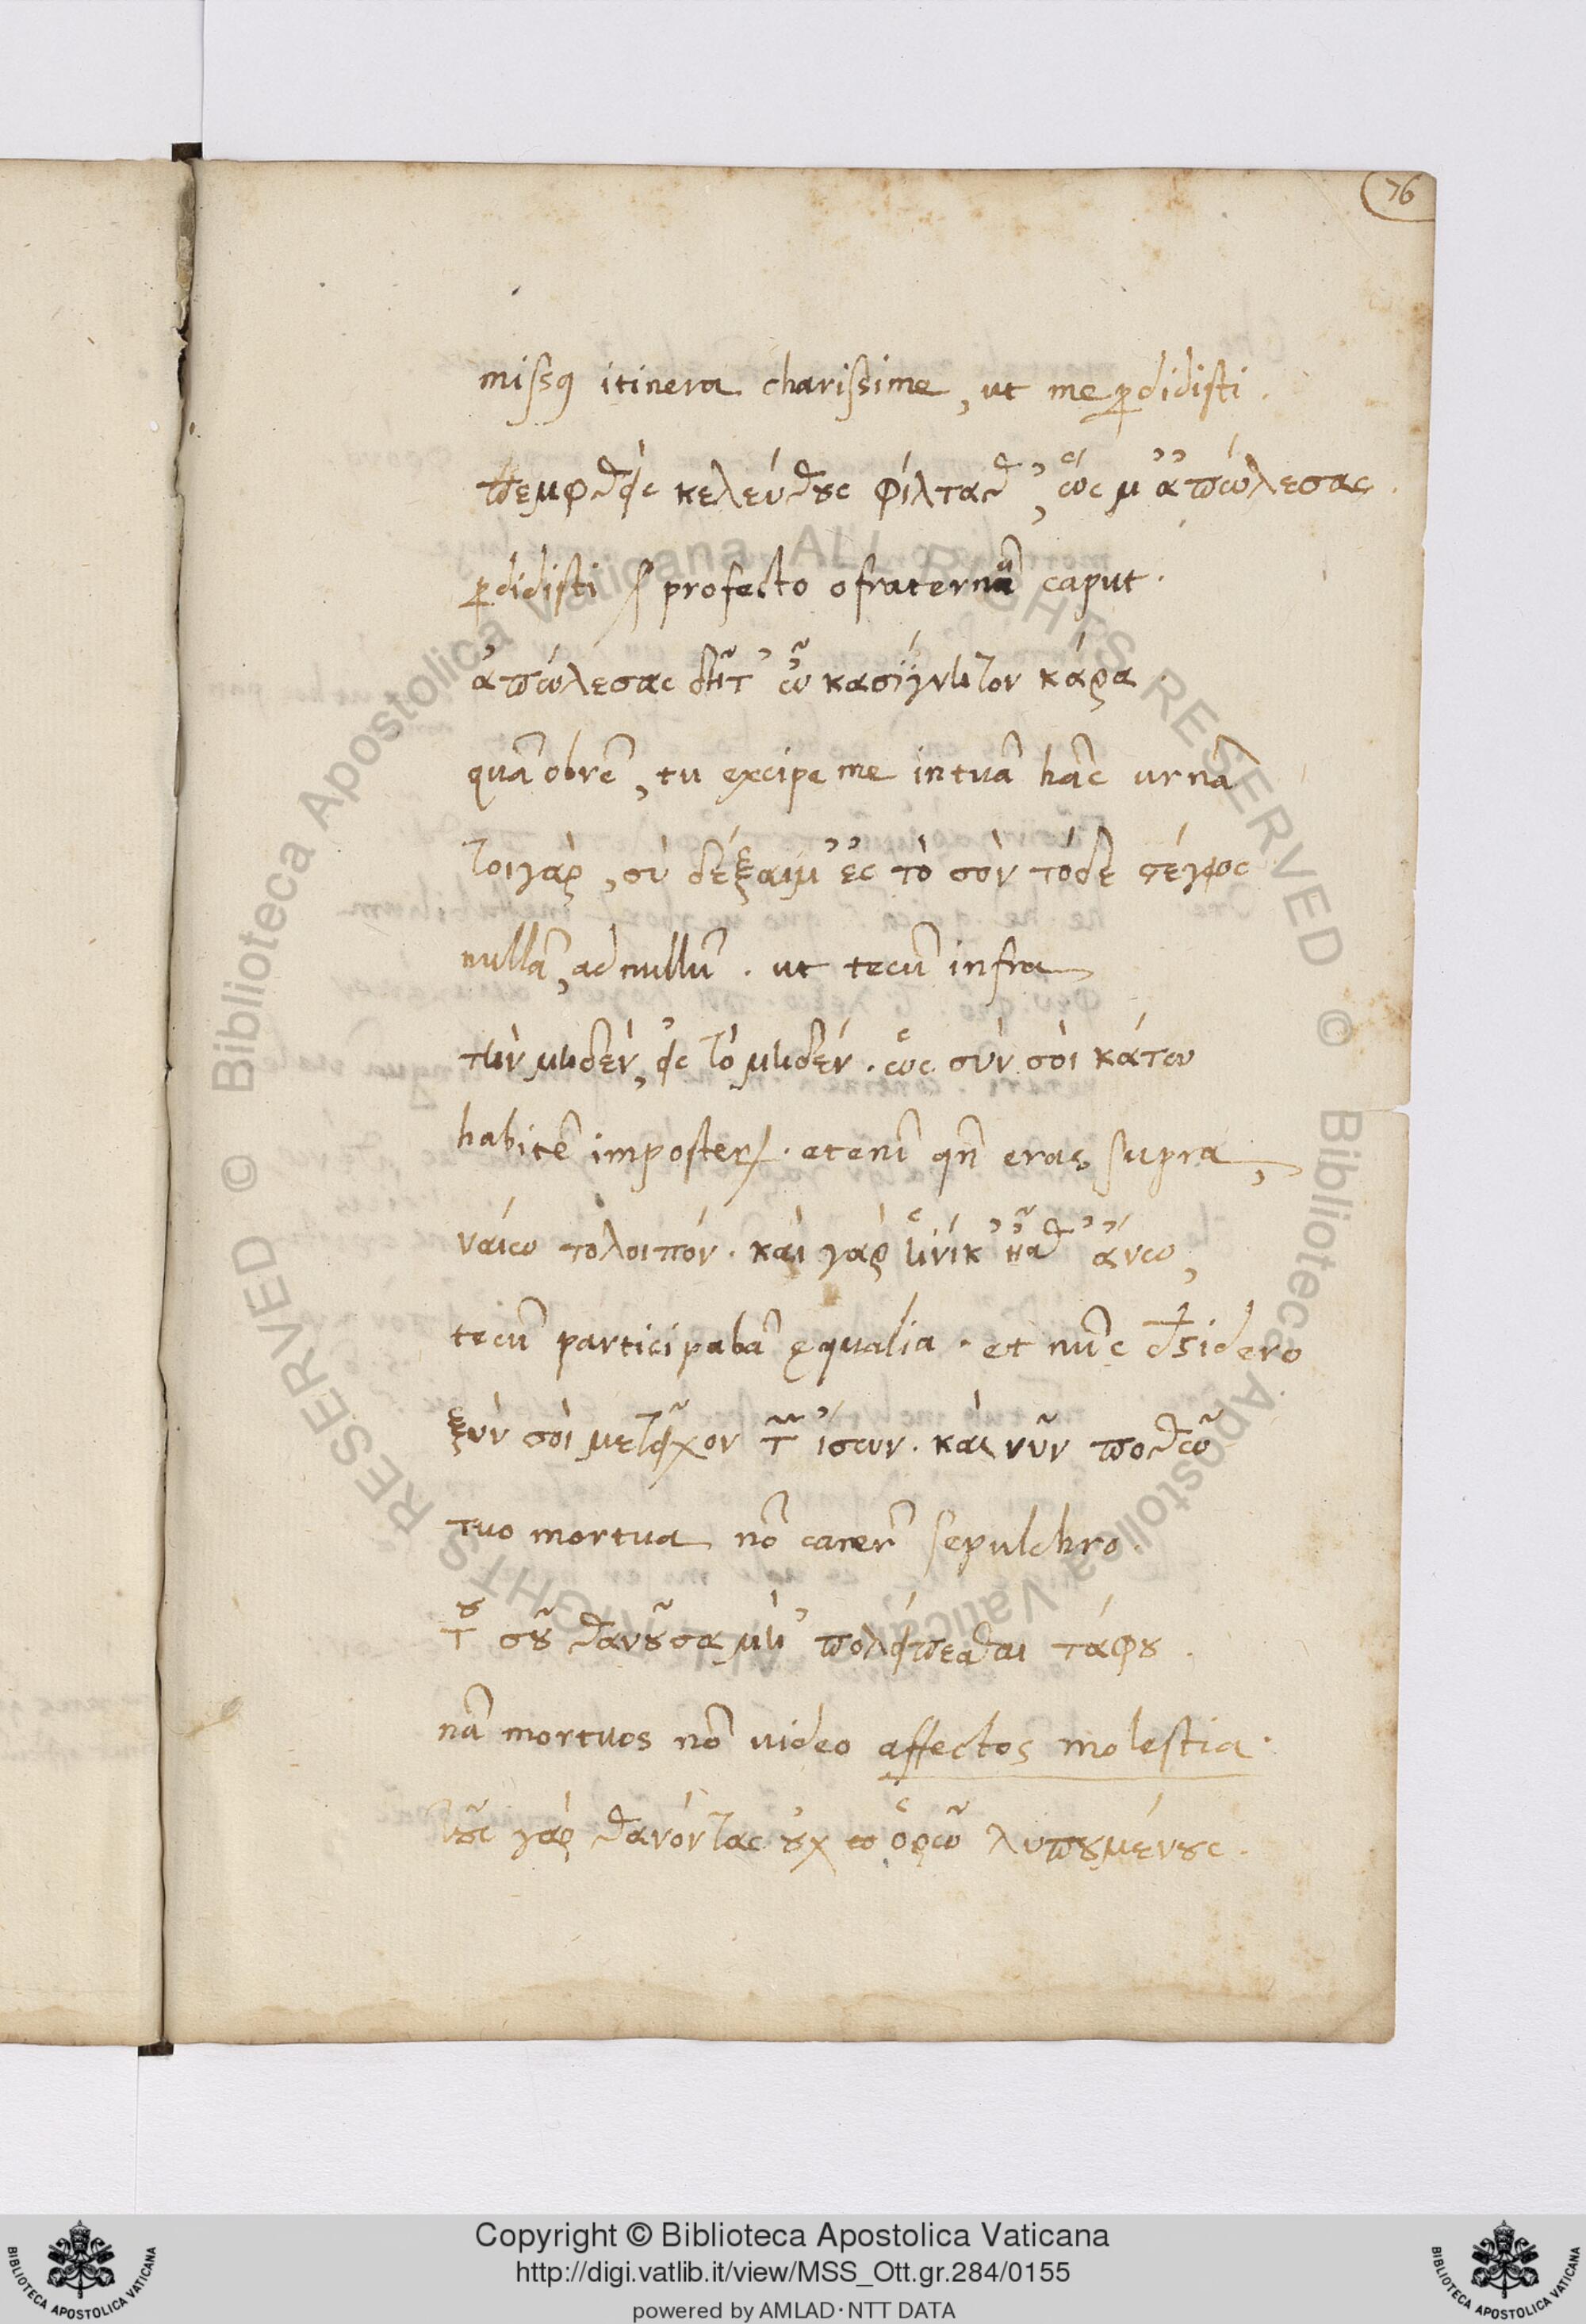 76
missꝯ itinera charissime, ut me ꝑdidisti.
πεμφθεὶς κελεύθους φίλταθ', ὥς μ' ἀπώλεσας.
ꝑdidisti profecto o fraternũ caput.
ἀπώλεσας δῆτ' ὦ κασίγνητον κάρα.
quãobrẽ, tu excipe me in tuã hãc urnã
τοιγὰρ, σὺ δέξαι μ' ἐς τὸ σὸν τόδε στέγος
nullã, ad nullũ. ut tecũ infra
τὴν μηδὲν, εἰς τὸ μηδέν. ὡς σὺν σοὶ κάτω
habitẽ imposterꝝ. etenĩ qñ eras supra,
ναίω τολοιπόν. καὶ γὰρ ἡνίκ' ἦσθ' ἄνω,
tecũ participabã ęqualia. et nũc dʼsidero
ξὺν σοὶ μετεῖχον τῶν ἴσων. καὶ νῦν ποθῶ
tuo mortua nõ carerẽ sepulchro.
τοῦ σοῦ θανοῦσα μὴ 'πολείπεσθαι τάφου.
nã mortuos nõ video affectos molestia.
τοὺς γὰρ θανόντας οὐχ ὁρῶ λυπουμένους.
Copyright © Biblioteca Apostolica Vaticana
http://digi.vatlib.it/view/MSS_Ott.gr.284/0155
powered by AMLAD·NTT DATA
© Biblioteca Apostolica Vaticana ALL RIGHTS RESERVED
© Biblioteca Apostolica Vaticana ALL RIGHTS RESERVED
BIBLIOTECA APOSTOLICA VATICANA
BIBLIOTECA APOSTOLICA VATICANA